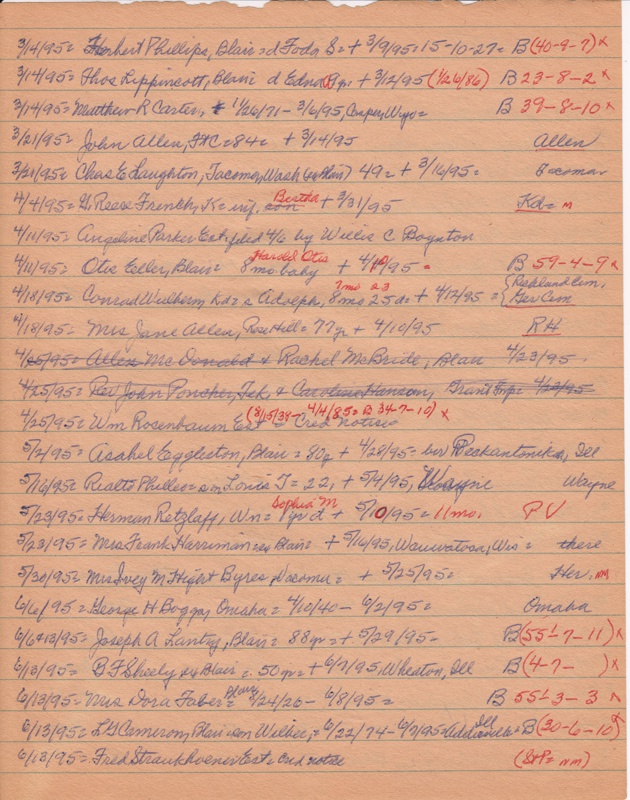 3/14/95= Herbert Phillips, Blair = d Foda S = + 3/9/95 = 15-10-27 = B (40-9-7) x
3/14/95= Thos Lippincott, Blair d Edna 8 yr + 3/2/95 (1/26/86) B 23-8-2 x
3/14/95= Matthew R Carter, 1/26/71 - 3/6/95, Casper, Wyo = B 39-8-10 x
3/21/95= John Allen, FtC = 84 = + 3/14/95 Allen
3/21/95= Chas E Laughton, Tacoma, Wash (ex Blair) 49 = + 3/16/95 = Tacoma
4/4/95= G. Reese French, K = inf. son Bertha + 3/31/95 Kd = nm
4/11/95= Angeline Parker Est filed 4/6 by Willis C Boynton
4/11/95= Otis Eller, Blair = Harold Otis 8 mo baby + 4/10/95 = B 59-4-9 x
4/18/95= Conrad Wulbern, Kd = s Adolph, 7 mo 23 8 mo 25 da = + 4/12/95 = {Richland Cem, Ger Cem
4/18/95= Mrs Jane Allen, Rose Hill = 77 yr + 4/10/95 RH
4/25/95= Allen McDonald & Rachel McBride, Blair 4/23/95.
4/25/95= Rev John Poucher, Tek, & Caroline Hanson, Grant Twp = 4/22/95
4/25/95= Wm Rosenbaum Est = Cred notice (8/15/38 - 4/4/85 = B 34-7-10) x
5/2/95= Asahel Eggleston, Blair = 80 y + 4/28/95 = bur Ill
5/16/95= Realto Philleo = son Louis T = 22, + 5/4/95, Wayne Wayne
5/23/95= Herman Retzlaff, Wn = Sophia M 1 yr d + 5/10/95 = 11 mo. PV
5/23/95= Mrs Frank Harriman = ex Blair = + 5/16/95, Wauwatosa, Wis = there
5/30/95= Mrs Ivey M Hight Byres, Nacoma = + 5/25/95 = Her, nm
6/6/95= George H Boggs, Omaha = 4/10/40 - 6/2/95 = Omaha
6/6&13/95= Joseph A Lantry, Blair = 88 yr = + 5/29/95 = B (55½-7-11) x
6/13/95= B F Sheely ex Blair = 50 yr = + 6/7/95 Wheaton, Ill B (4-7- ) x
6/13/95= Mrs Dora Faber = Blair 4/24/26 - 6/8/95 = B 55½-3-3 x
6/13/95= L G Cameron, Blair = son Wilber, = 6/22/74 - 6/7/95 = Ill B (30-6-10) x
6/13/95= Fred Straukhoener Est = cred notice (StP = nm)